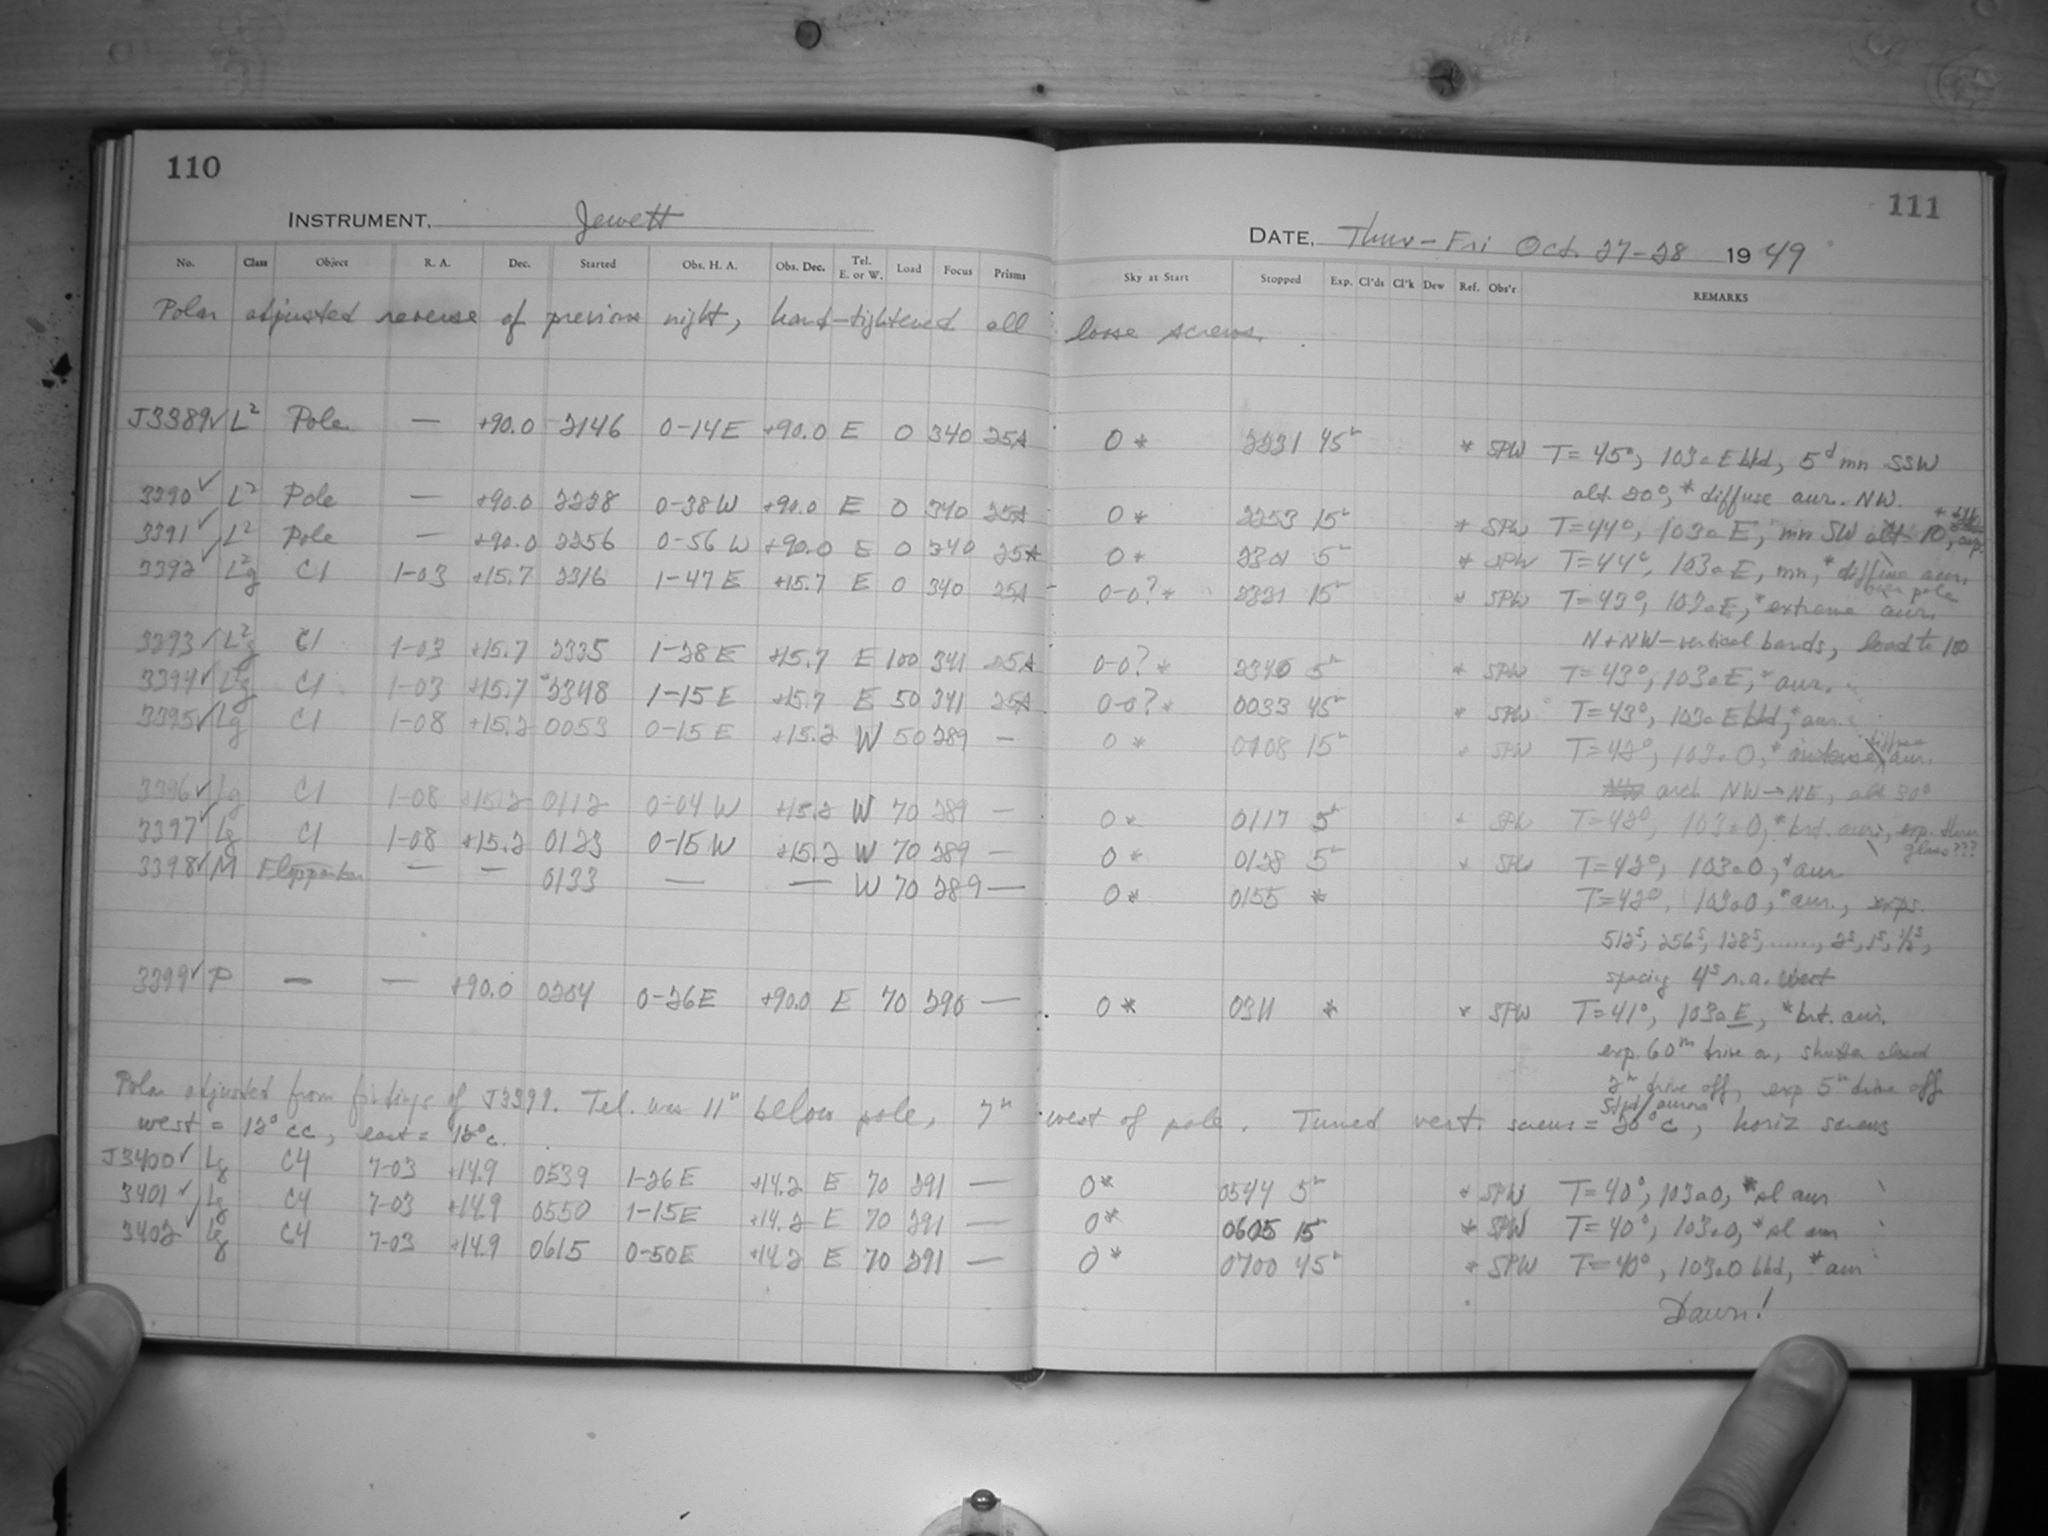 110
INSTRUMENT, Jewett
No. Class Object R. A. Dec. Started Obs. H. A. Obs. Dec. Tel. E. or W. Load Focus Prisms
Polar adjusted reverse of previous night, hand-tightened all
J3389✓ L² Pole — +90.0 2146 0-14E +90.0 E 0 340 25A
3390✓ L² Pole — +90.0 2238 0-38W +90.0 E 0 340 25A
3391✓ L² Pole — +90.0 2256 0-56W +90.0 E 0 340 25A
3392✓ L²g C1 1-03 +15.7 2316 1-47E +15.7 E 0 340 25A
3393✓ L²g C1 1-03 +15.7 2335 1-28E +15.7 E 100 341 25A
3394✓ L²g C1 1-03 +15.7 2348 1-15E +15.7 E 50 341 25A
3395✓ Lg C1 1-08 +15.2 0053 0-15E +15.2 W 50 289 —
3396✓ Lg C1 1-08 +15.2 0112 0-04W +15.2 W 70 289 —
3397✓ Lg C1 1-08 +15.2 0123 0-15W +15.2 W 70 289 —
3398✓ M — — 0133 — — W 70 289 —
3399✓ P — — +90.0 0204 0-26E +90.0 E 70 290 —
Polar adjusted from findings of J3399. Tel. was 11" below pole, 7"
west = 12° cc, east = 12° c.
J3400✓ Lg C4 7-03 +14.9 0539 1-26E +14.2 E 70 291 —
3401✓ Lg C4 7-03 +14.9 0550 1-15E +14.2 E 70 291 —
3402✓ Lg C4 7-03 +14.9 0615 0-50E +14.2 E 70 291 —
111
DATE, Thur-Fri Oct. 27-28 1949
Sky at Start Stopped Exp. Cl'ds Cl'k Dew Ref. Obs'r REMARKS
loose screws.
0* 2231 45ᵐ * SPW T=45°, 103aE bkd, 5ᵈ mn SSW
alt. 20°, * diffuse aur. NW.
0* 2253 15ᵐ * SPW T=44°, 103aE, mn SW alt. 10,
0* 2301 5ᵐ * SPW T=44°, 103aE, mn, * diffuse aur.
0-0?* 2331 15ᵐ * SPW T=43°, 103aE, * extreme aur.
N+NW-vertical bands, load to 100
0-0?* 2340 5ᵐ * SPW T=43°, 103aE, * aur.
0-0?* 0033 45ᵐ * SPW T=43°, 103aE bkd, * aur.
0* 0108 15ᵐ * SPW T=42°, 103aO, * intense diffuse aur.
arch NW→NE, alt 30°
0* 0117 5ᵐ * SPW T=42°, 103aO, * brt. aur., exp. thru
glass???
0* 0128 5ᵐ * SPW T=42°, 103aO, * aur
0* 0155 * T=42°, 103aO, * aur., exps.
512ˢ, 256ˢ, 128ˢ, ......, 2ˢ, 1ˢ, ½ˢ,
spacing 4ˢ r.a. West
0* 0311 * * SPW T=41°, 103aE, * brt. aur.
exp. 60ᵐ drive on, shutter closed
2ᵐ drive off, exp 5ᵐ drive off
west of pole. Turned vert. screws = 20°c, horiz screws
0* 0544 5ᵐ * SPW T=40°, 103aO, * sl aur
0* 0605 15ᵐ * SPW T=40°, 103aO, * sl aur
0* 0700 45ᵐ * SPW T=40°, 103aO bkd, * aur
Dawn!